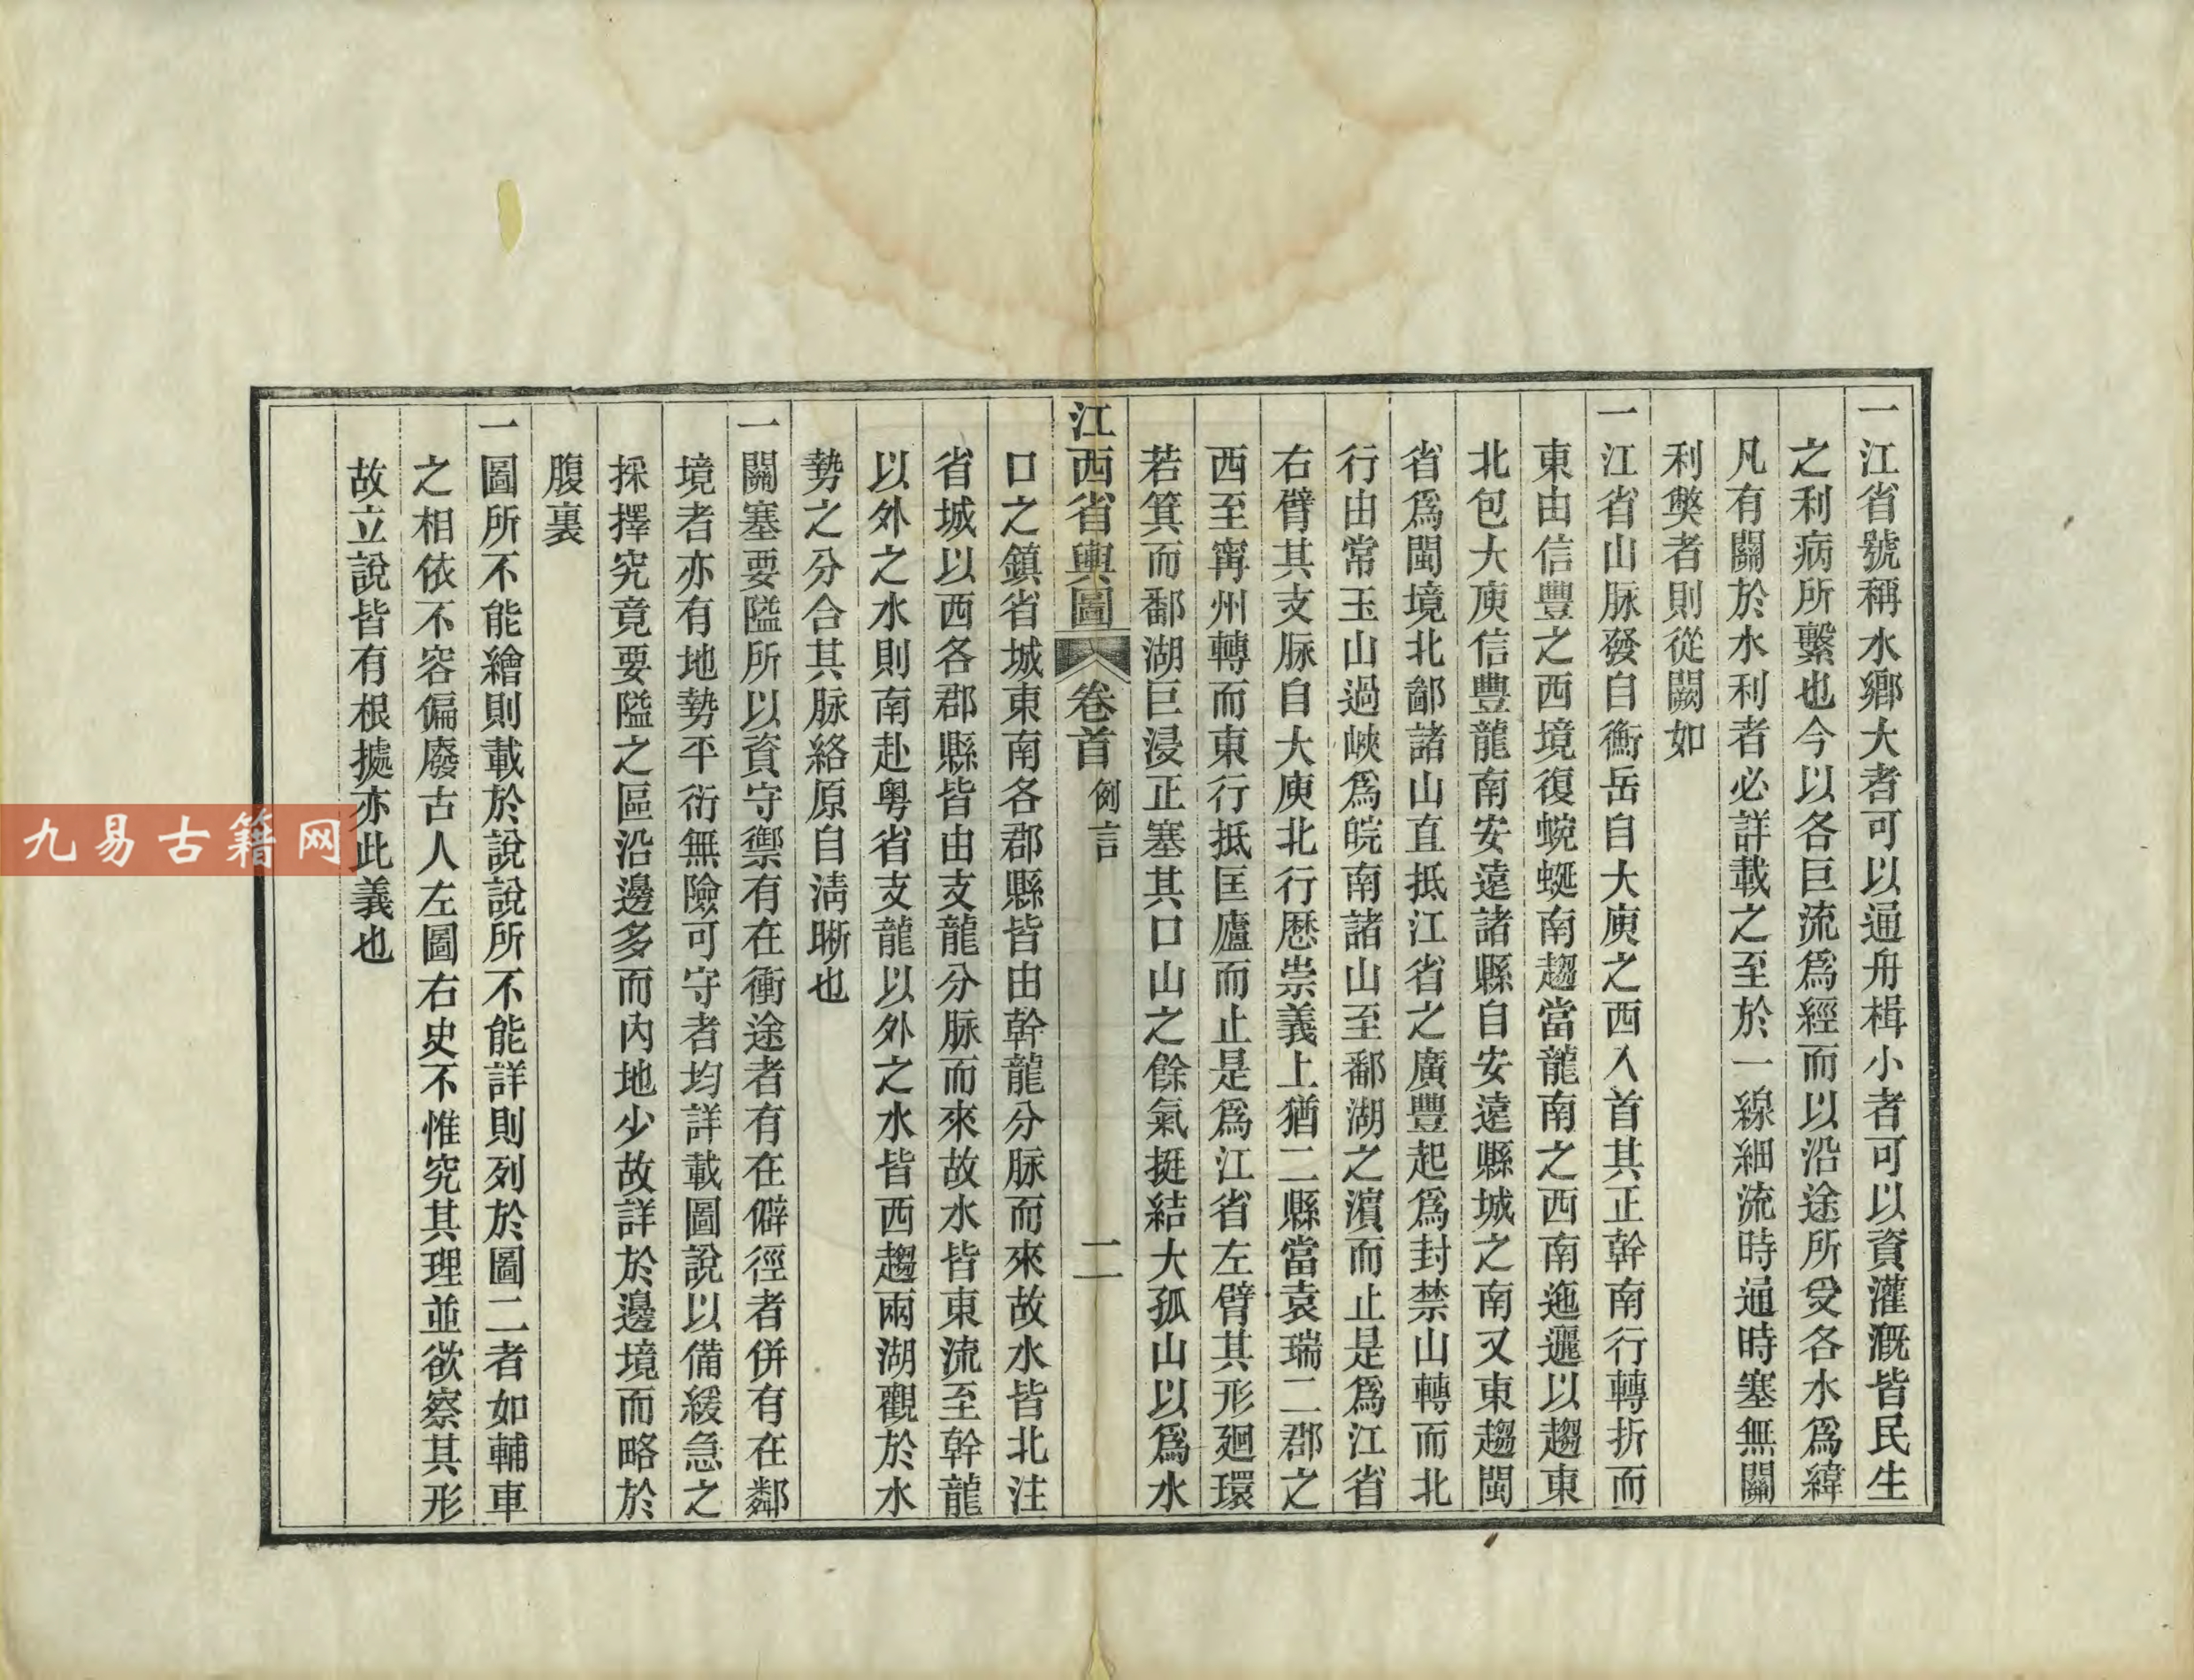 一江省號稱水鄉大者可以通舟楫小者可以資灌溉皆民生
之利病所繫也今以各巨流爲經而以沿途所受各水爲緯
凡有關於水利者必詳載之至於一線細流時通時塞無關
利獘者則從闕如
一江省山脉發自衡岳自大庾之西入首其正幹南行轉折而
東由信豐之西境復蜿蜒南趨當龍南之西南迤邐以趨東
北包大庾信豐龍南安遠諸縣自安遠縣城之南又東趨閩
省爲閩境北鄙諸山直抵江省之廣豐起爲封禁山轉而北
行由常玉山過峽爲皖南諸山至鄱湖之濵而止是爲江省
右臂其支脉自大庾北行歷崇義上猶二縣當袁瑞二郡之
西至甯州轉而東行抵匡廬而止是爲江省左臂其形廻環
若箕而鄱湖巨浸正塞其口山之餘氣挺結大孤山以爲水
江西省輿圖 卷首 例言 二
口之鎮省城東南各郡縣皆由幹龍分脉而來故水皆北注
省城以西各郡縣皆由支龍分脉而來故水皆東流至幹龍
以外之水則南赴粵省支龍以外之水皆西趨兩湖觀於水
勢之分合其脉絡原自淸晰也
一關塞要隘所以資守禦有在衝途者有在僻徑者併有在鄰
境者亦有地勢平衍無險可守者均詳載圖說以備緩急之
採擇究竟要隘之區沿邊多而內地少故詳於邊境而略於
腹裏
一圖所不能繪則載於說說所不能詳則列於圖二者如輔車
之相依不容偏廢古人左圖右史不惟究其理並欲察其形
故立說皆有根據亦此義也
九易古籍网